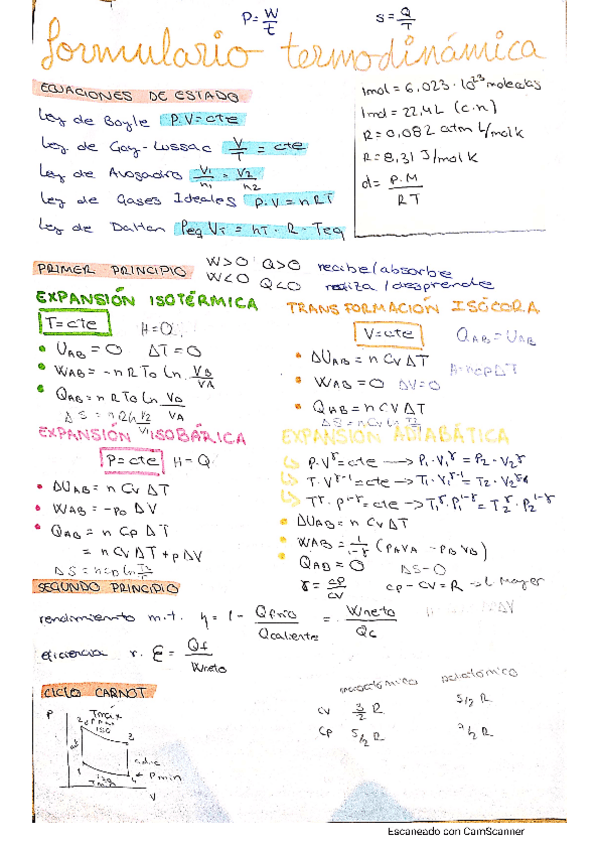 P = W/t    S = Q/T
formulario termodinámica
ECUACIONES DE ESTADO
Ley de Boyle P.V = cte
Ley de Gay-Lussac V/T = cte
Ley de Avogadro V1/n1 = V2/n2
Ley de Gases Ideales P.V = nRT
Ley de Dalton Peq VT = nT · R · Teq
1mol = 6,023 · 10^23 moleculas
1mol = 22,4L (c.n)
R = 0,082 atm L/mol K
R = 8,31 J/mol K
d = P.M/RT
PRIMER PRINCIPIO W>0 Q>0 recibe/absorbe
W<0 Q<0 realiza/desprende
EXPANSIÓN ISOTÉRMICA
T = cte H=0
• UAB = 0 ΔT = 0
• WAB = -nRTo Ln VB/VA
• QAB = nRTo Ln VB/VA
ΔS = nRLn V2/V1
TRANSFORMACIÓN ISÓCORA
V = cte QAB = UAB
• ΔUAB = n CV ΔT H=nCpΔT
• WAB = 0 ΔV=0
• QAB = n CV ΔT
ΔS = nCv Ln T2
EXPANSIÓN ISOBÁRICA
P = cte H = Q
• ΔUAB = n CV ΔT
• WAB = -Po ΔV
• QAB = n CP ΔT
= n CV ΔT + pΔV
ΔS = nCp Ln T2/T1
EXPANSIÓN ADIABÁTICA
P.V^γ = cte → P1·V1^γ = P2·V2^γ
T.V^γ-1 = cte → T1·V1^γ-1 = T2·V2^γ-1
T^γ·P^1-γ = cte → T1^γ·P1^1-γ = T2^γ·P2^1-γ
• ΔUAB = n CV ΔT
• WAB = 1/1-γ (PAVA - PBVB)
• QAB = 0 ΔS=0
γ = CP/CV CP - CV = R → L Mayer
SEGUNDO PRINCIPIO
rendimiento m.t. η = 1 - Qfrio/Qcaliente = Wneto/Qc
eficiencia r. ε = Qf/Wneto
CICLO CARNOT
monoatómico diatómico
CV 3/2 R 5/2 R
CP 5/2 R 7/2 R
P
Tmáx
Pmax
ISO
2
3
adic
1
4
Pmin
V
Escaneado con CamScanner